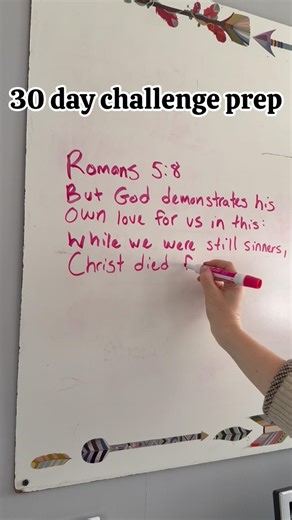 30 day challenge prep
Romans 5:8
But God demonstrates his
Own love for us in this:
While we were still sinners,
Christ died f